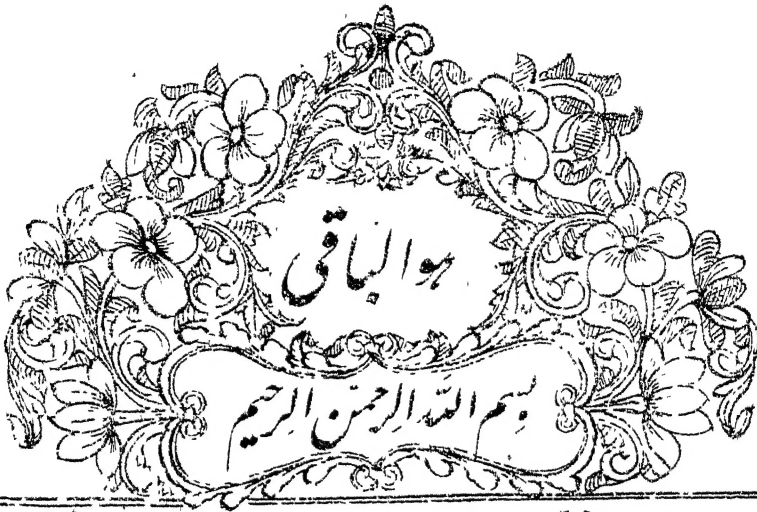 هوالباقی
بسم الله الرحمن الرحیم